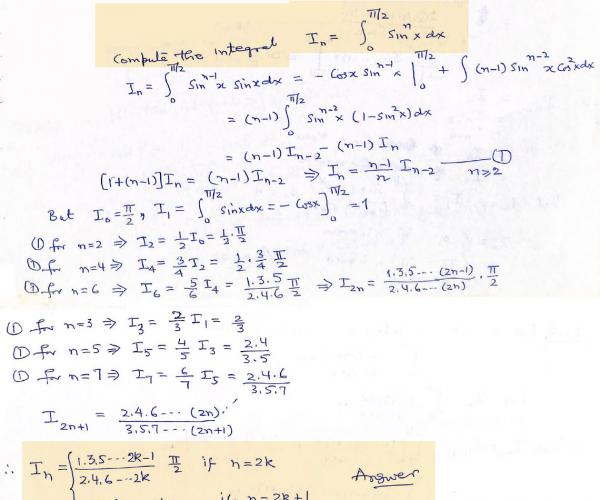 Compute the integral I_n = ∫_0^{π/2} sin^n x dx
I_n = ∫_0^{π/2} sin^{n-1} x sin x dx = - cos x sin^{n-1} x |_0^{π/2} + ∫ (n-1) sin^{n-2} x cos^2 x dx
= (n-1) ∫_0^{π/2} sin^{n-2} x (1-sin^2 x) dx
= (n-1) I_{n-2} - (n-1) I_n
[1+(n-1)] I_n = (n-1) I_{n-2} ⇒ I_n = \frac{n-1}{n} I_{n-2} —— ① n≥2
But I_0 = \frac{π}{2}, I_1 = ∫_0^{π/2} sin x dx = - cos x ]_0^{π/2} = 1
① for n=2 ⇒ I_2 = \frac{1}{2} I_0 = \frac{1}{2} · \frac{π}{2}
① for n=4 ⇒ I_4 = \frac{3}{4} I_2 = \frac{1}{2} · \frac{3}{4} \frac{π}{2}
① for n=6 ⇒ I_6 = \frac{5}{6} I_4 = \frac{1.3.5}{2.4.6} \frac{π}{2} ⇒ I_{2n} = \frac{1.3.5---(2n-1)}{2.4.6---(2n)} · \frac{π}{2}
① for n=3 ⇒ I_3 = \frac{2}{3} I_1 = \frac{2}{3}
① for n=5 ⇒ I_5 = \frac{4}{5} I_3 = \frac{2.4}{3.5}
① for n=7 ⇒ I_7 = \frac{6}{7} I_5 = \frac{2.4.6}{3.5.7}
I_{2n+1} = \frac{2.4.6---(2n)}{3.5.7---(2n+1)}
∴ I_n = { \frac{1.3.5---2k-1}{2.4.6---2k} \frac{π}{2} if n=2k
Answer
if n=2k+1